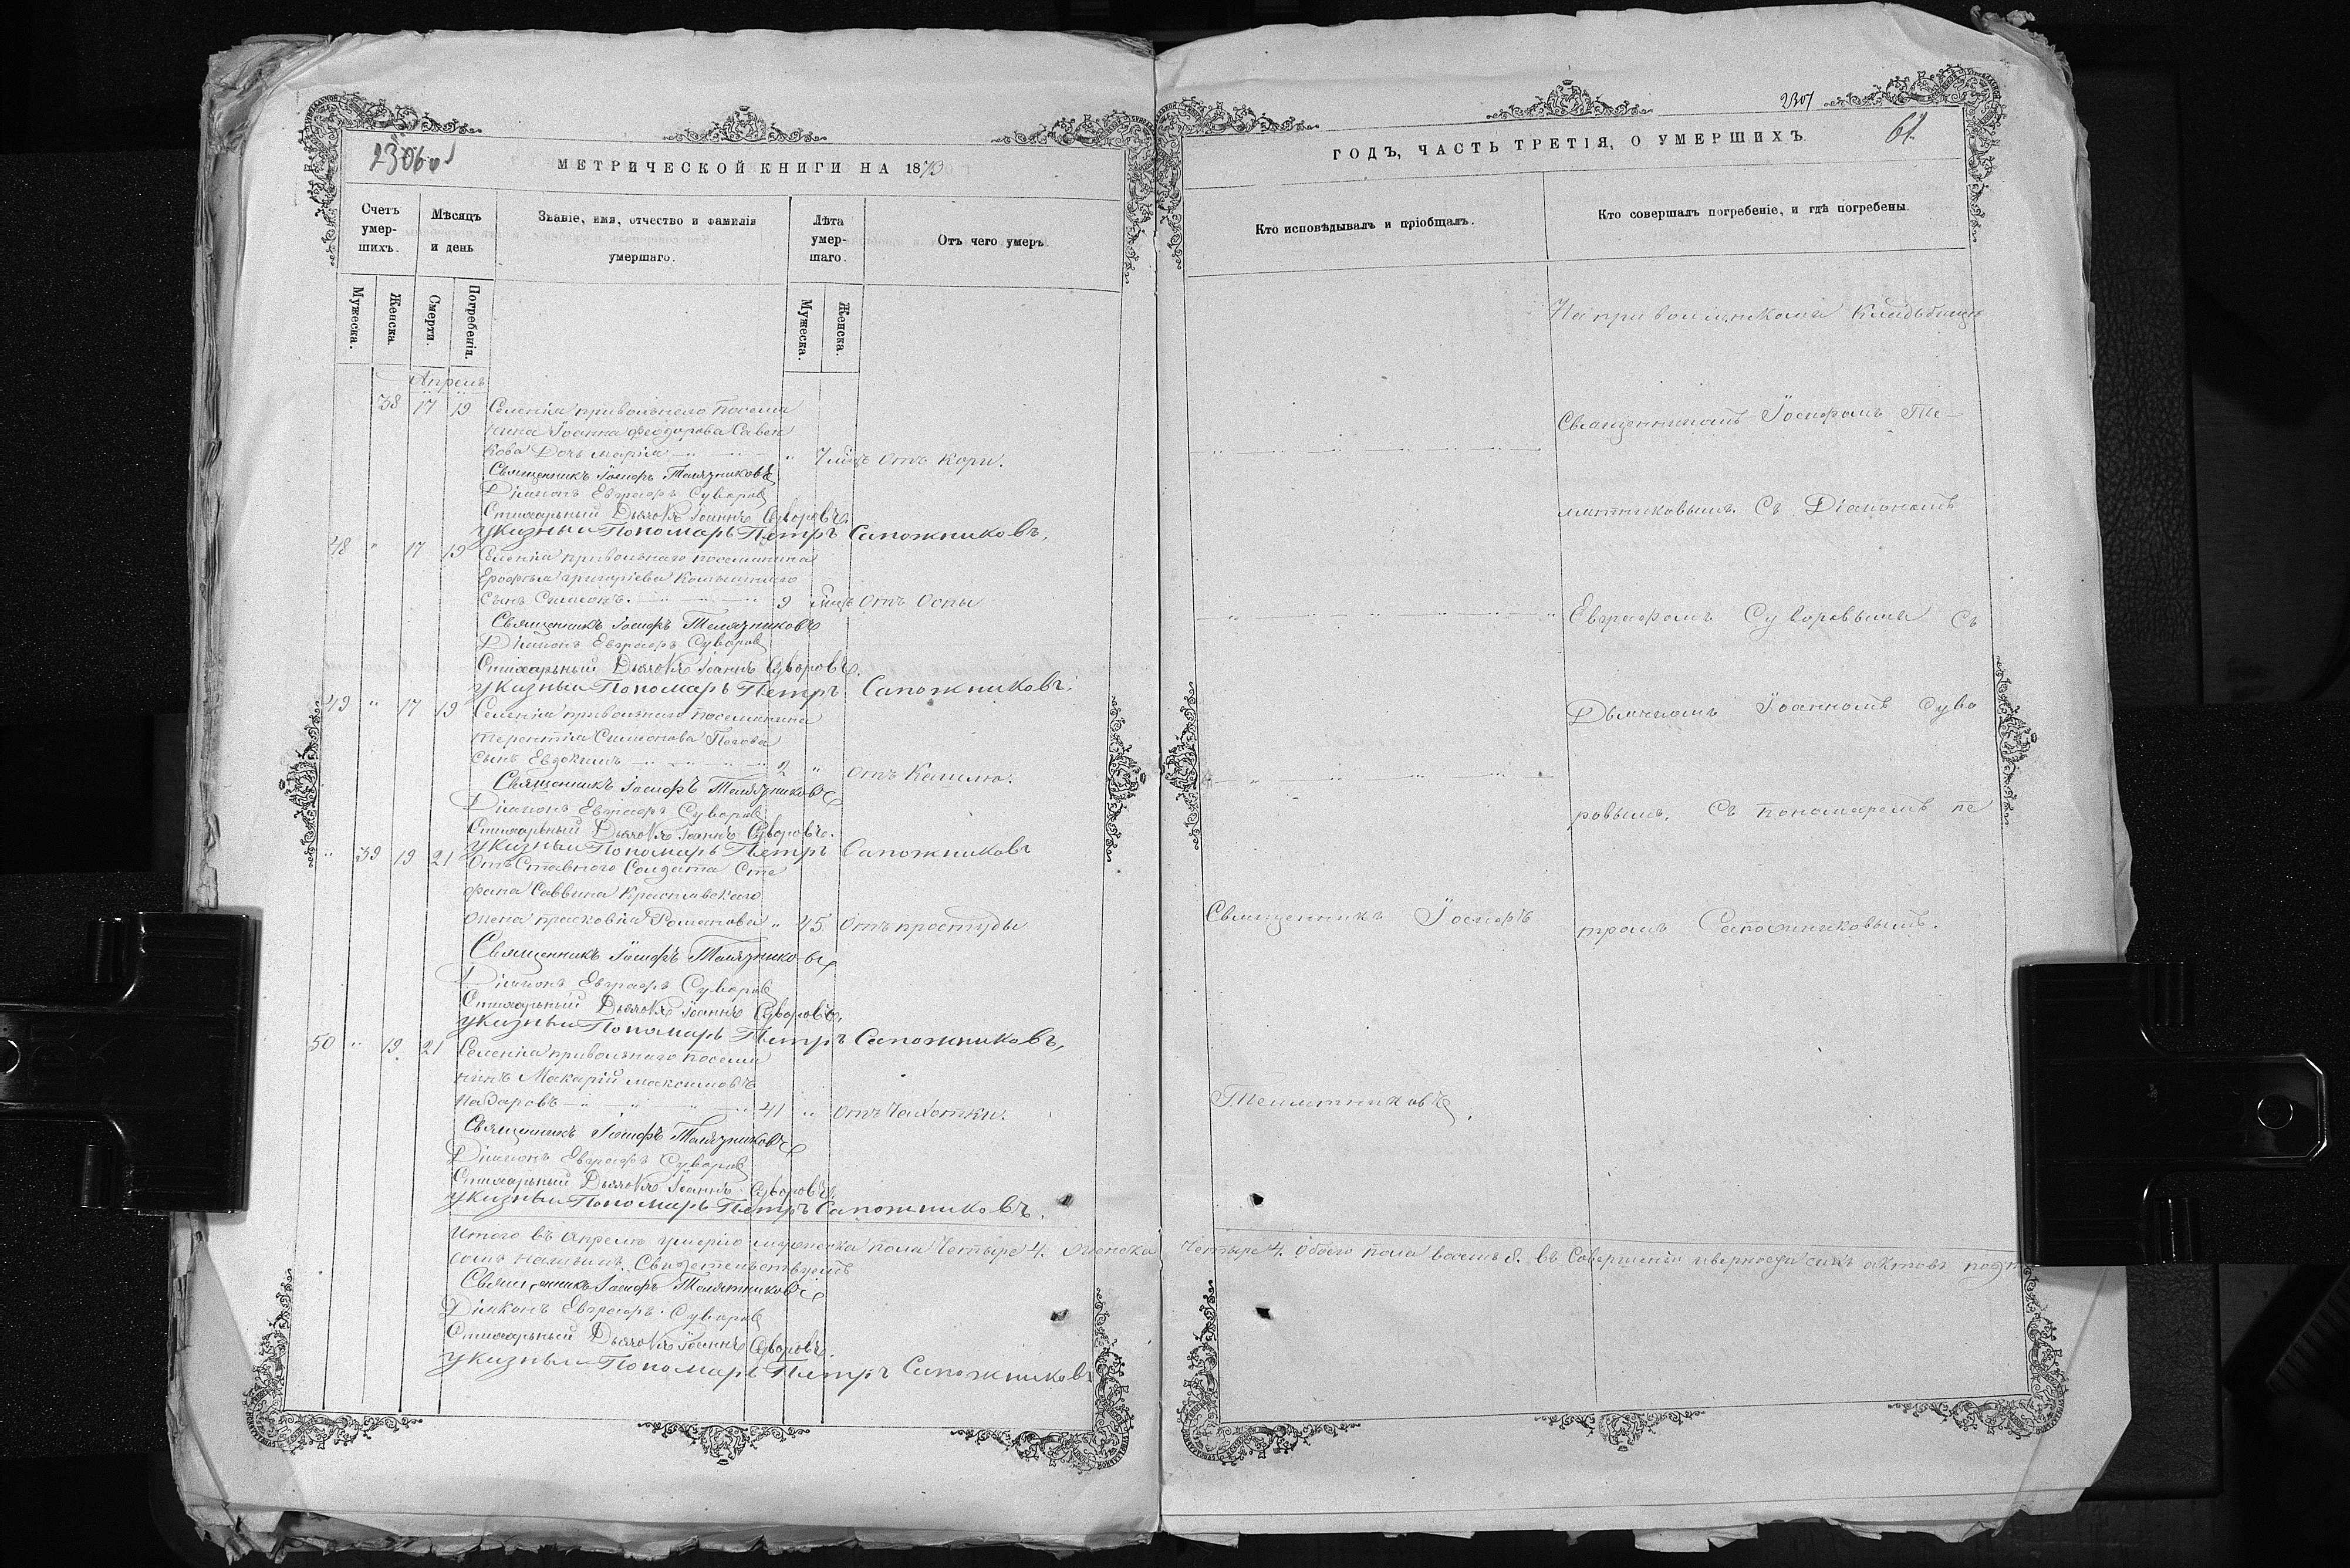 2306 об
МЕТРИЧЕСКОЙ КНИГИ НА 1873
Счетъ умершихъ.
Мѣсяцъ и день
Званіе, имя, отчество и фамилія умершаго.
Лѣта умершаго.
Отъ чего умеръ
Мужеска.
Женска.
Смерти.
Погребенія.
Мужеска.
Женска.
Апрель
38 17 19 Селенія привольнего поселя
нина Іоанна Феодорова Савен
кова Дочь марія " 7 мцъ Отъ Кори.
Священникъ Іосифъ Телятниковъ
Діаконъ Евграфъ Суворов
Стихарный Дьячокъ Іоаннъ Суворовъ.
указный Пономарь Петръ Сапожниковъ,
48 " 17 19 Селенія привольнаго поселянина
Ерофѣя григоріева
Сынъ Симеонъ. 9 мцъ Отъ Оспы
Священникъ Іосифъ Телятниковъ
Діаконъ Евграфъ Суворов
Стихарный Дьячокъ Іоаннъ Суворовъ.
указный Пономарь Петръ Сапожниковъ.
49 " 17 19 Селенія привольнаго поселянина
терентіа Симеонова
Сынъ Евдокимъ 2 " Отъ Кашлю.
Священникъ Іосифъ Телятниковъ
Діаконъ Евграфъ Суворов
Стихарный Дьячокъ Іоаннъ Суворовъ.
указный Пономарь Петръ Сапожниковъ
" 39 19 21 Отъставного Солдата Сте
фана Саввина
жена прасковіа Романова " 45 Отъ простуды
Священникъ Іосифъ Телятниковъ
Діаконъ Евграфъ Суворов
Стихарный Дьячокъ Іоаннъ Суворовъ.
указный Пономарь Петръ Сапожниковъ,
50 " 19 21 Селенія привольнаго поселя
нинъ Макарій максимовъ
Назаровъ 41 " Отъ Чахотки.
Священникъ Іосифъ Телятниковъ
Діаконъ Евграфъ Суворов
Стихарный Дьячокъ Іоаннъ Суворовъ.
указный Пономарь Петръ Сапожниковъ.
Итого въ апрелѣ умерло мужеска пола Четыре 4. женска
Свидетельствуемъ
Священникъ Іосифъ Телятниковъ
Діаконъ Евграфъ Суворов
Стихарный Дьячокъ Іоаннъ Суворовъ.
указный Пономарь Петръ Сапожниковъ
2307
61
ГОДЪ, ЧАСТЬ ТРЕТІЯ, О УМЕРШИХЪ
Кто исповѣдывалъ и пріобщалъ.
Кто совершалъ погребеніе, и гдѣ погребены.
На привольнскомъ кладьбище
Священникомъ Іосифомъ Те-
лятниковымъ. Съ Діакономъ
Евграфомъ Суворовымъ Съ
Дьячкомъ Іоанномъ Суво
ровымъ, Съ пономаремъ пе
тромъ Сапожниковымъ.
Священникъ Іосифъ
Телятниковъ.
Четыре 4. обоего пола восемь 8. въ Совершеніи актовъ